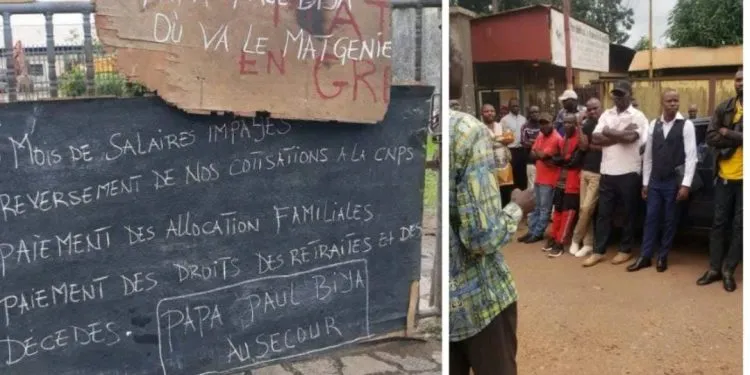 PAPA PAUL BIYA
OÙ VA LE MATGENIE
EN GRE
MOIS DE SALAIRES IMPAYES
REVERSEMENT DE NOS COTISATIONS A LA CNPS
PAIEMENT DES ALLOCATION FAMILIALES
PAIEMENT DES DROITS DES RETRAITES ET DES
DÉCÉDÉS.
PAPA PAUL BIYA
AU SECOUR